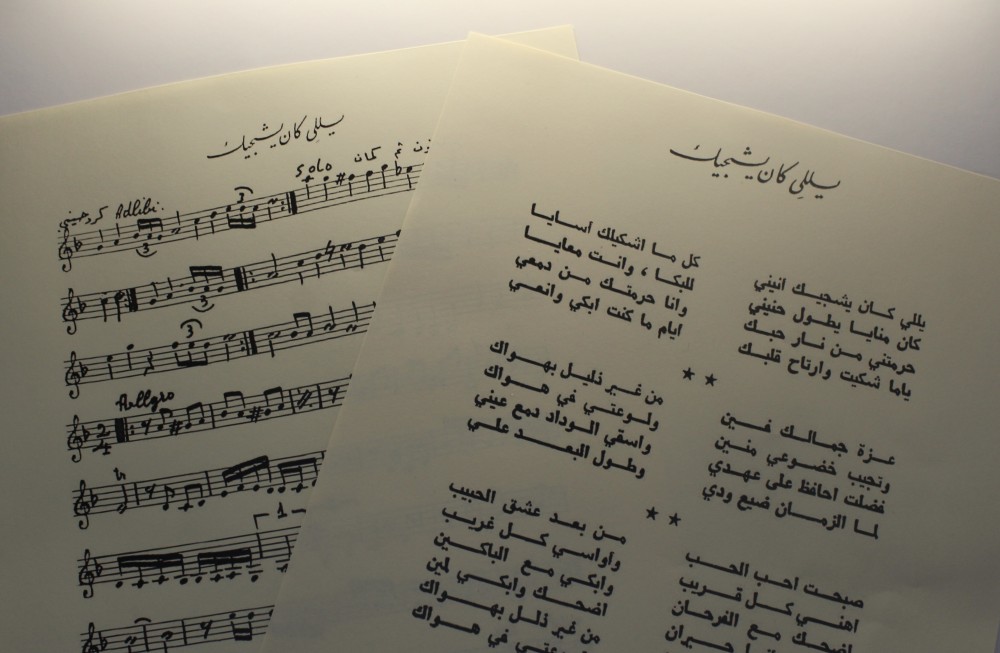 يسللي كان يشجيك
كردجيني Adlibi.
SOLO
كمان
ثم
3
3
3
3
3
Allgro
2
4
1
يسللي كان يشجيك
يللي كان يشجيك انيني
كل ما اشكيلك أسايا
كان منايا يطول حنيني
للبكا ، وانت معايا
حرمتني من نار حبك
وانا حرمتك من دمعي
ياما شكيت وارتاح قلبك
ايام ما كنت ابكي وانعي
★ ★
عزة جمالك فين
من غير ذليل يهواك
وتجيب خضوعي منين
ولوعتي في هواك
فضلت احافظ على عهدي
واسقي الوداد دمع عيني
لما الزمان ضيع ودي
وطول البعد علي
★ ★
صبحت احب الحب
من بعد عشق الحبيب
اهني كل قريب
واواسي كل غريب
اضحك مع الفرحان
وابكي مع الباكين
حيران
اضحك وابكي لمين
من غير ذلل يهواك
في هواك